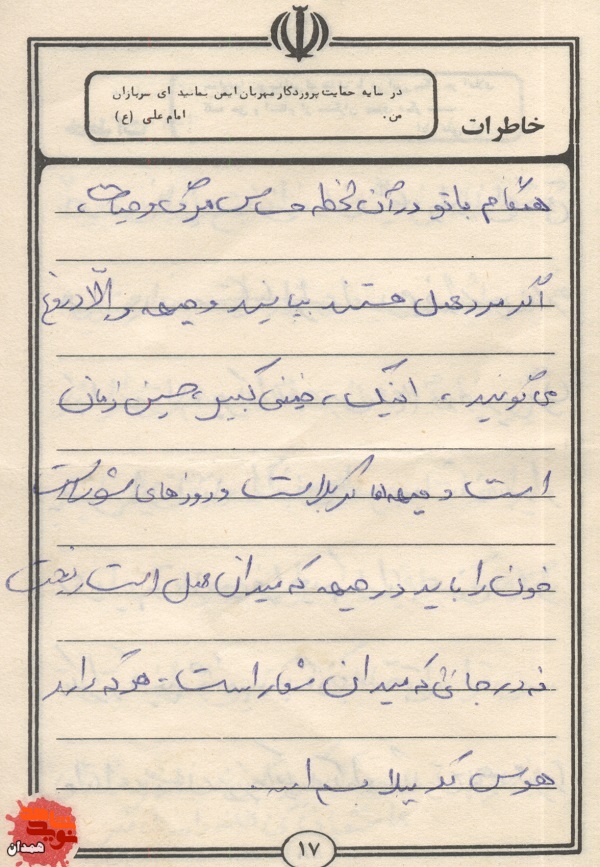 در سایه حمایت پروردگار مهربان ایمن بمانید ای سربازان
من. امام علی (ع)
خاطرات
هنگام با تو در آن لحظه حساس مرگ و حیات،
اگر مرد عمل هستند بیایند و جبهه و الّا دروغ
می گویند، اینک، خمینی کبیر، حسین زمان
است و جبهه ها کربلاست و روزهای عاشوراست
خون را باید در جبهه که میدان عمل است ریخت
نه در جائی که میدان شعار است. هر که دارد
هوس کربلا بسم الله.
نوید
همدان
۱۷